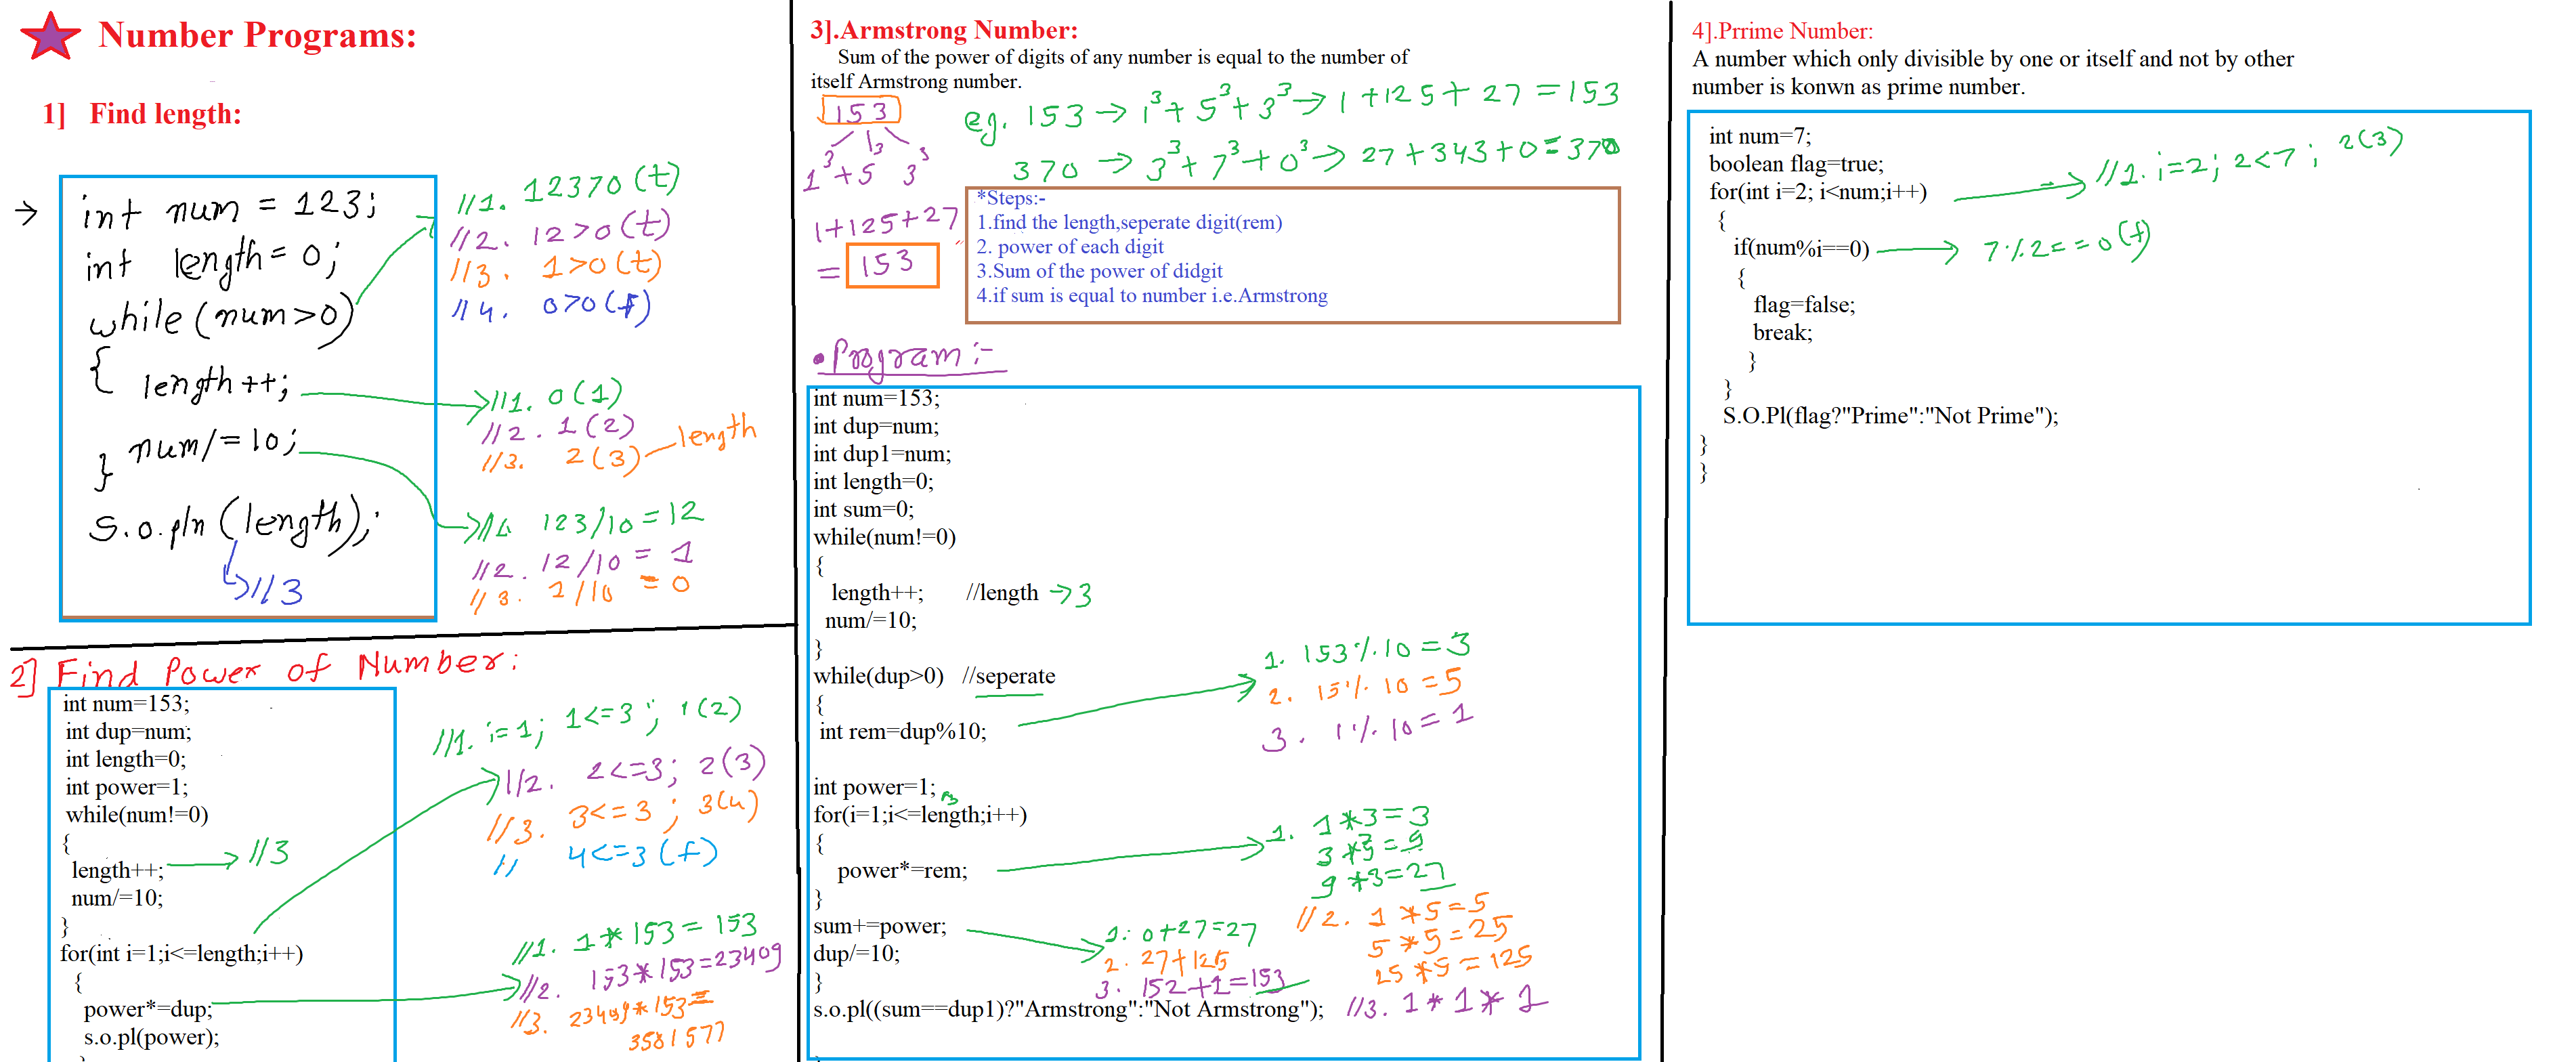 Number Programs:
1] Find length:
→ int num = 123;
int length = 0;
while (num>0)
{ length ++;
num/=10;
}
s.o.pln (length);
→//3
//1. 12370 (t)
//2. 12>0 (t)
//3. 1>0 (t)
//4. 0>0 (f)
//1. 0(1)
//2. 1(2)
//3. 2(3) length
//1 123/10 = 12
//2. 12/10 = 1
//3. 1/10 = 0
2] Find Power of Number:
int num=153;
int dup=num;
int length=0;
int power=1;
while(num!=0)
{
length++; → //3
num/=10;
}
for(int i=1;i<=length;i++)
{
power*=dup;
s.o.pl(power);
}
//1. i=1; 1<=3; 1(2)
//2. 2<=3; 2(3)
//3. 3<=3; 3(4)
// 4<=3 (f)
//1. 1*153 = 153
//2. 153*153=23409
//3. 23409*153=
3581577
3].Armstrong Number:
Sum of the power of digits of any number is equal to the number of
itself Armstrong number.
153
1³ +5³ 3³
1+125+27
= 153
eg. 153 → 1³+ 5³+ 3³→ 1+125+ 27 =153
370 → 3³+ 7³+0³→ 27+343+0=370
*Steps:-
1.find the length,seperate digit(rem)
2. power of each digit
3.Sum of the power of didgit
4.if sum is equal to number i.e.Armstrong
•Program :-
int num=153;
int dup=num;
int dup1=num;
int length=0;
int sum=0;
while(num!=0)
{
length++; //length →3
num/=10;
}
while(dup>0) //seperate
{
int rem=dup%10;
1. 153%10 = 3
2. 15% 10 =5
3. 1% 10 = 1
int power=1;
for(i=1;i<=length;i++)
{
power*=rem;
}
1. 1*3=3
3*3=9
9*3=27
//2. 1*5=5
5*5=25
25*5=125
//3. 1*1*1
sum+=power;
dup/=10;
}
1. 0+27=27
2. 27+125
3. 152+1=153
s.o.pl((sum==dup1)?"Armstrong":"Not Armstrong");
4].Prrime Number:
A number which only divisible by one or itself and not by other
number is konwn as prime number.
int num=7;
boolean flag=true;
for(int i=2; i<num;i++) → //1. i=2; 2<7; 2(3)
{
if(num%i==0) → 7%2==0(f)
{
flag=false;
break;
}
}
S.O.Pl(flag?"Prime":"Not Prime");
}
}